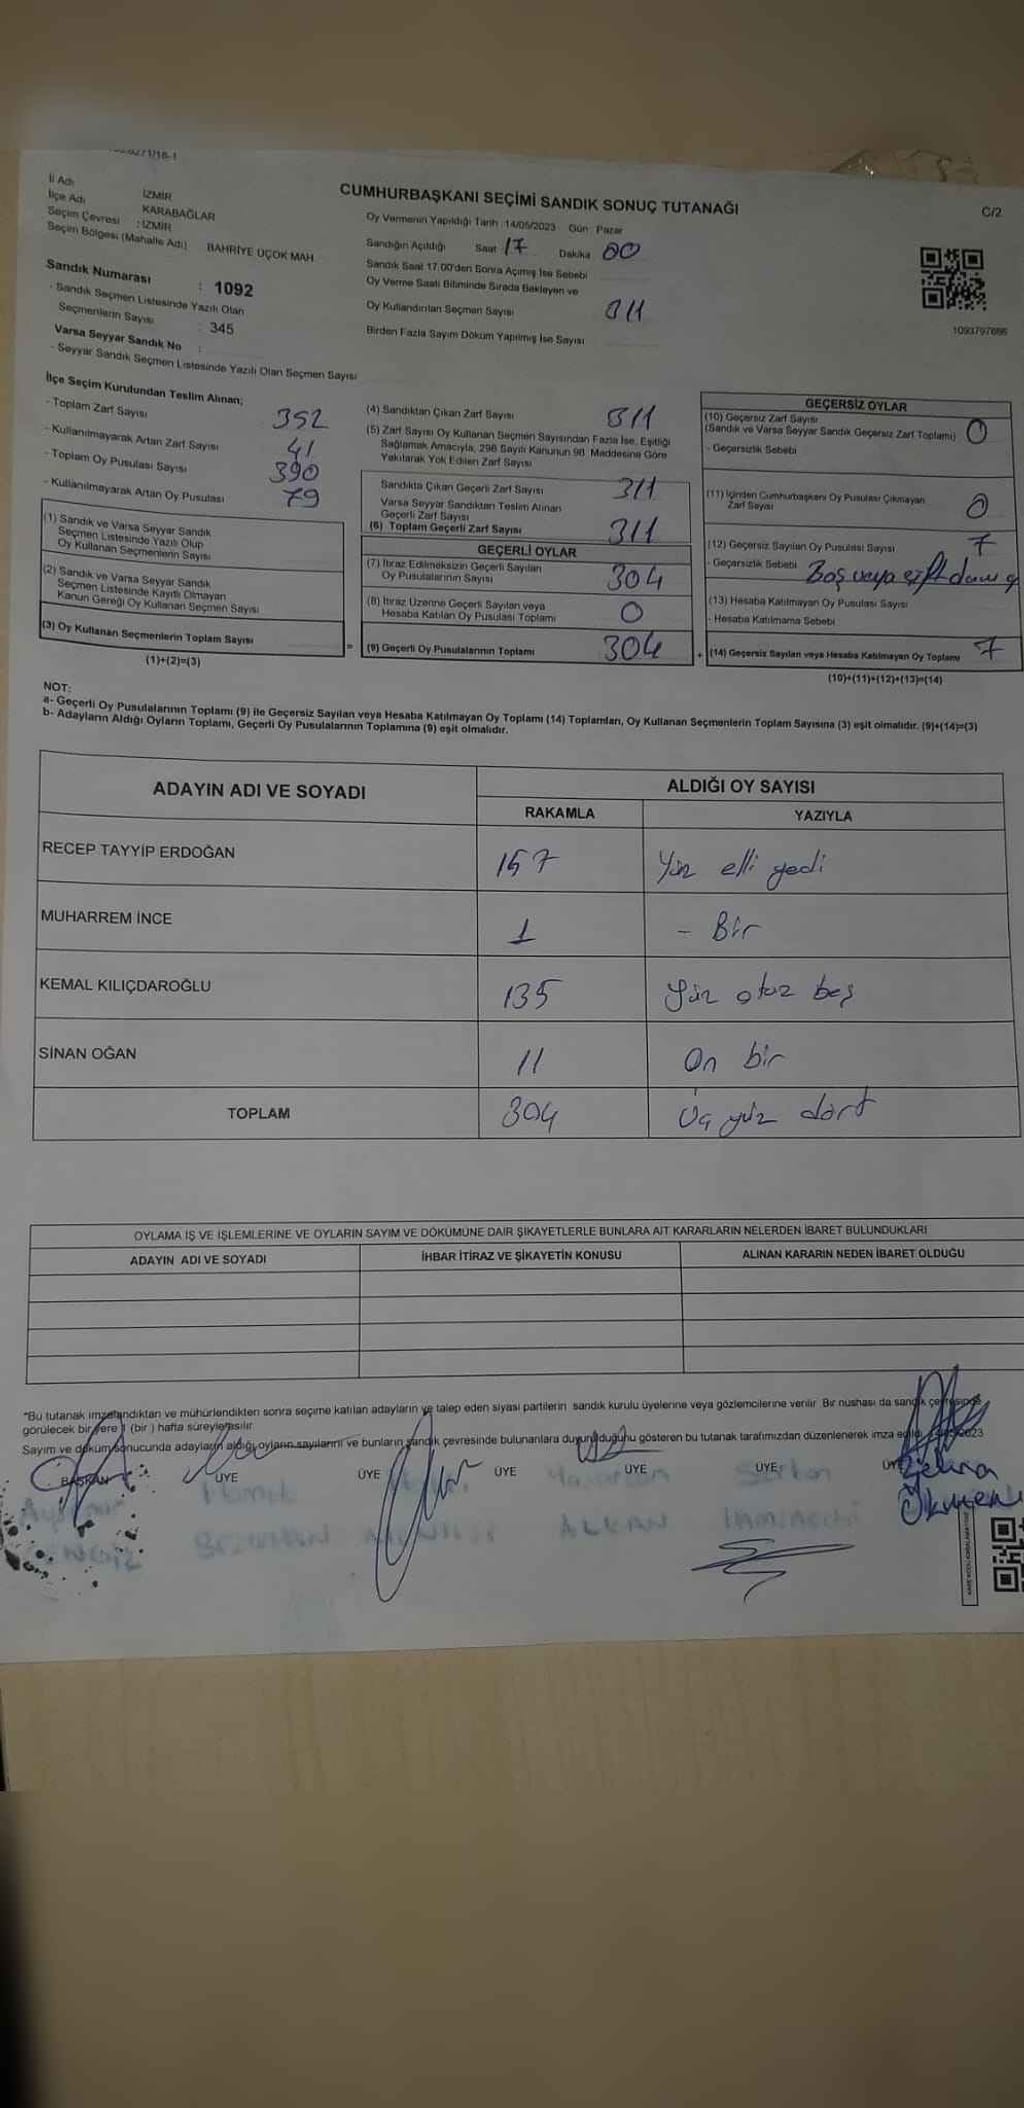 CUMHURBAŞKANI SEÇİMİ SANDIK SONUÇ TUTANAĞI
C/2
İl Adı : İZMİR
İlçe Adı KARABAĞLAR
Seçim Çevresi : İZMİR
Seçim Bölgesi (Mahalle Adı) BAHRİYE ÜÇOK MAH
Oy Vermenin Yapıldığı Tarih :14/05/2023 Gün : Pazar
Sandığın Açıldığı Saat 17 Dakika 00
Sandık Saat 17.00'den Sonra Açımış İse Sebebi
Oy Verme Saati Bitiminde Sırada Bekleyen ve
Oy Kullandırılan Seçmen Sayısı 311
Birden Fazla Sayım Döküm Yapılmış İse Sayısı
1093797695
Sandık Numarası : 1092
- Sandık Seçmen Listesinde Yazılı Olan
Seçmenlerin Sayısı : 345
Varsa Seyyar Sandık No :
- Seyyar Sandık Seçmen Listesinde Yazılı Olan Seçmen Sayısı
İlçe Seçim Kurulundan Teslim Alınan;
- Toplam Zarf Sayısı 352
- Kullanılmayarak Artan Zarf Sayısı 41
- Toplam Oy Pusulası Sayısı 390
- Kullanılmayarak Artan Oy Pusulası 79
(1) Sandık ve Varsa Seyyar Sandık
Seçmen Listesinde Yazılı Olup
Oy Kullanan Seçmenlerin Sayısı
(2) Sandık ve Varsa Seyyar Sandık
Seçmen Listesinde Kayıtlı Olmayan
Kanun Gereği Oy Kullanan Seçmen Sayısı
(3) Oy Kullanan Seçmenlerin Toplam Sayısı =
(1)+(2)=(3)
(4) Sandıktan Çıkan Zarf Sayısı 311
(5) Zarf Sayısı Oy Kullanan Seçmen Sayısından Fazla İse, Eşitliği
Sağlamak Amacıyla, 298 Sayılı Kanunun 98. Maddesine Göre
Yakılarak Yok Edilen Zarf Sayısı
Sandıkta Çıkan Geçerli Zarf Sayısı 311
Varsa Seyyar Sandıktan Teslim Alınan
Geçerli Zarf Sayısı
(6) Toplam Geçerli Zarf Sayısı 311
GEÇERLİ OYLAR
(7) İtiraz Edilmeksizin Geçerli Sayılan
Oy Pusulalarının Sayısı 304
(8) İtiraz Üzerine Geçerli Sayılan veya
Hesaba Katılan Oy Pusulası Toplamı 0
(9) Geçerli Oy Pusulalarının Toplamı 304 +
GEÇERSİZ OYLAR
(10) Geçersiz Zarf Sayısı
(Sandık ve Varsa Seyyar Sandık Geçersiz Zarf Toplamı) 0
- Geçersizlik Sebebi
(11) İçinden Cumhurbaşkanı Oy Pusulası Çıkmayan
Zarf Sayısı 0
(12) Geçersiz Sayılan Oy Pusulası Sayısı 7
- Geçersizlik Sebebi Boş veya çift damg
(13) Hesaba Katılmayan Oy Pusulası Sayısı
- Hesaba Katılmama Sebebi
(14) Geçersiz Sayılan veya Hesaba Katılmayan Oy Toplamı 7
(10)+(11)+(12)+(13)=(14)
NOT:
a- Geçerli Oy Pusulalarının Toplamı (9) ile Geçersiz Sayılan veya Hesaba Katılmayan Oy Toplamı (14) Toplamları, Oy Kullanan Seçmenlerin Toplam Sayısına (3) eşit olmalıdır. (9)+(14)=(3)
b- Adayların Aldığı Oyların Toplamı, Geçerli Oy Pusulalarının Toplamına (9) eşit olmalıdır.
ADAYIN ADI VE SOYADI ALDIĞI OY SAYISI
RAKAMLA YAZIYLA
RECEP TAYYİP ERDOĞAN 157 Yüz elli yedi
MUHARREM İNCE 1 - Bir
KEMAL KILIÇDAROĞLU 135 Yüz otuz beş
SİNAN OĞAN 11 On bir
TOPLAM 304 Üç yüz dört
OYLAMA İŞ VE İŞLEMLERİNE VE OYLARIN SAYIM VE DÖKÜMÜNE DAİR ŞİKAYETLERLE BUNLARA AİT KARARLARIN NELERDEN İBARET BULUNDUKLARI
ADAYIN ADI VE SOYADI İHBAR İTİRAZ VE ŞİKAYETİN KONUSU ALINAN KARARIN NEDEN İBARET OLDUĞU
*Bu tutanak imzalandıktan ve mühürlendikten sonra seçime katılan adayların ve talep eden siyasi partilerin sandık kurulu üyelerine veya gözlemcilerine verilir. Bir nüshası da sandık çevresinde
görülecek bir yere 1 (bir ) hafta süreyle asılır.
Sayım ve döküm sonucunda adayların aldığı oyların sayılarını ve bunların sandık çevresinde bulunanlara duyurulduğunu gösteren bu tutanak tarafımızdan düzenlenerek imza edildi.
BAŞKAN ÜYE ÜYE ÜYE ÜYE ÜYE ÜYE
ALKAN